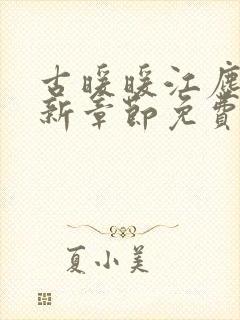 古暖暖江尘
新章节免费
夏小美